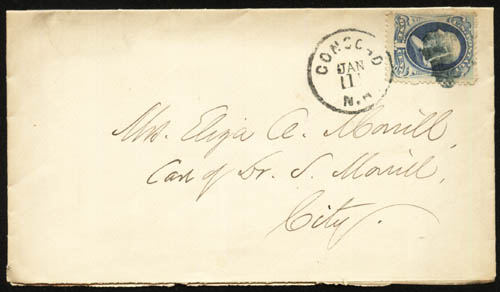 CONCORD
JAN
11
N.H
Mrs. Eliza A. Morrill,
Care of Dr. S. Morrill,
City.